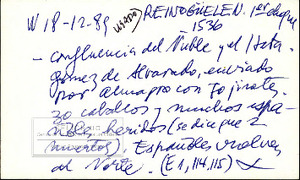 W 18-12-89 usado REINOGÜELEN. 1er choque
- 1536
- confluencia del Ñuble y el Itata
Gómez de Alvarado, enviado
por Almagro con 70 jinetes.
30 caballos y muchos espa-
ñoles heridos (se dice que 2
muertos). Españoles vuelven
al Norte. (E1, 114, 115)